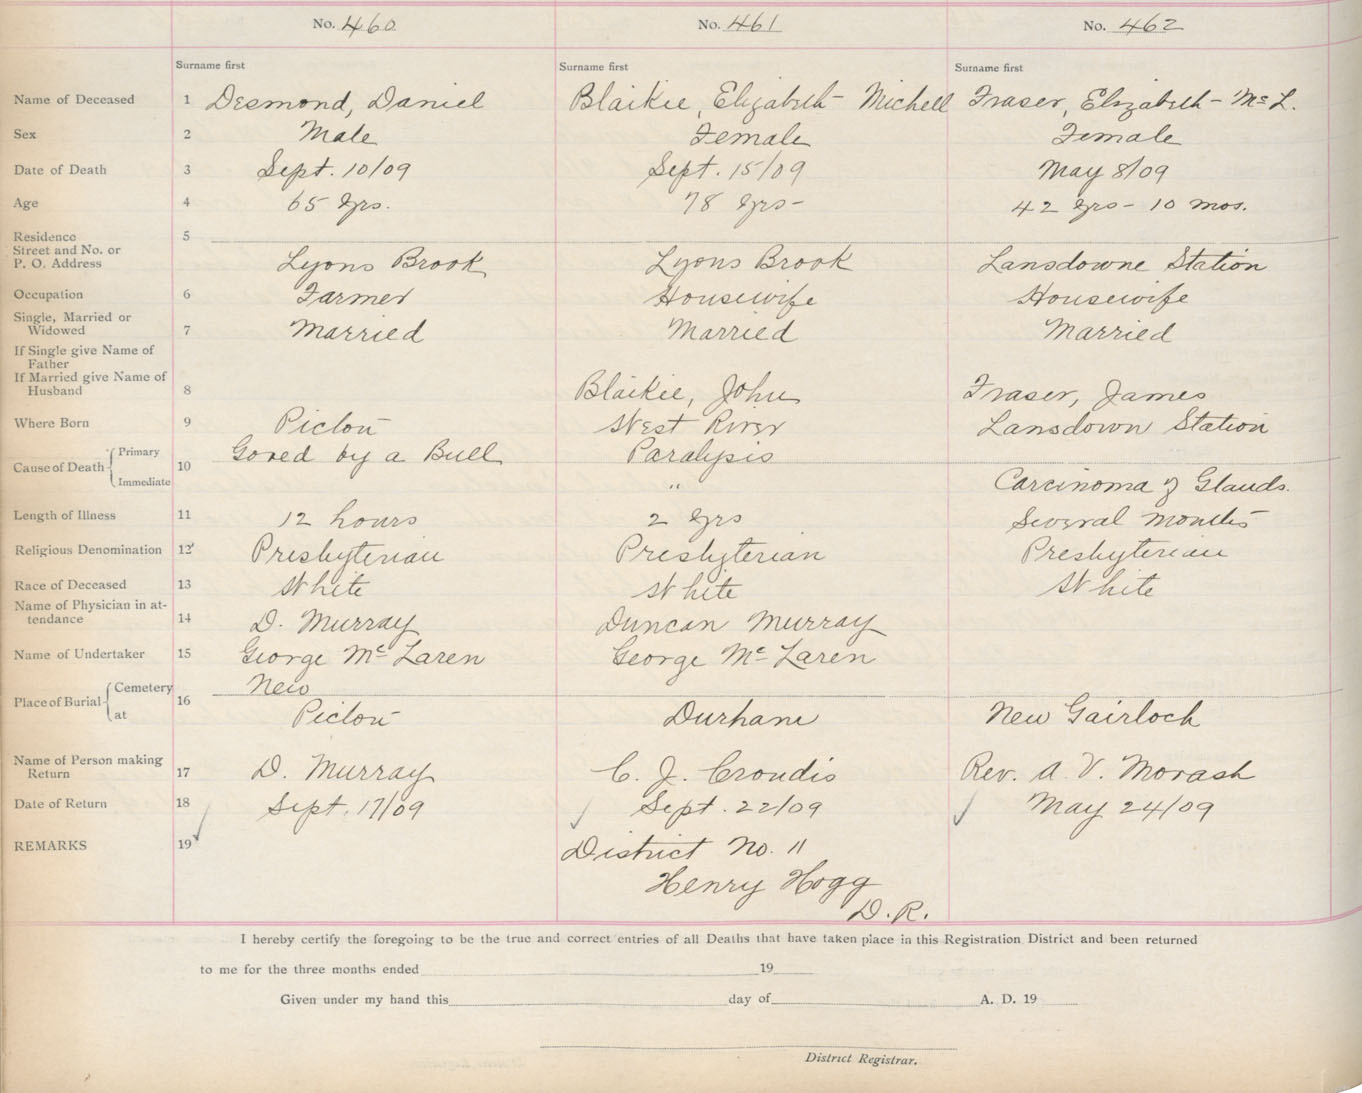 No. 460 No. 461 No. 462
Surname first Surname first Surname first
Name of Deceased 1 Desmond, Daniel Blaikie, Elizabeth Michell Fraser, Elizabeth McL.
Sex 2 Male Female Female
Date of Death 3 Sept. 10/09 Sept. 15/09 May 8/09
Age 4 65 yrs. 78 yrs- 42 yrs- 10 mos.
Residence 5
Street and No. or
P. O. Address Lyons Brook Lyons Brook Lansdowne Station
Occupation 6 Farmer Housewife Housewife
Single, Married or
Widowed 7 Married Married Married
If Single give Name of
Father
If Married give Name of
Husband 8 Blaikie, John Fraser, James
Where Born 9 Pictou West River Lansdown Station
Cause of Death Primary 10 Gored by a Bull Paralysis
Immediate " Carcinoma of Glands.
Length of Illness 11 12 hours 2 yrs Several months
Religious Denomination 12 Presbyterian Presbyterian Presbyterian
Race of Deceased 13 White White White
Name of Physician in at-
tendance 14 D. Murray Duncan Murray
Name of Undertaker 15 George McLaren George McLaren
Place of Burial Cemetery 16 New
at Pictou Durham New Gairloch
Name of Person making
Return 17 D. Murray C. J. Croudis Rev. A. V. Morash
Date of Return 18 Sept. 17/09 Sept. 22/09 May 24/09
REMARKS 19 District No. 11
Henry Hogg
D.R.
I hereby certify the foregoing to be the true and correct entries of all Deaths that have taken place in this Registration District and been returned
to me for the three months ended 19
Given under my hand this day of A. D. 19
District Registrar.